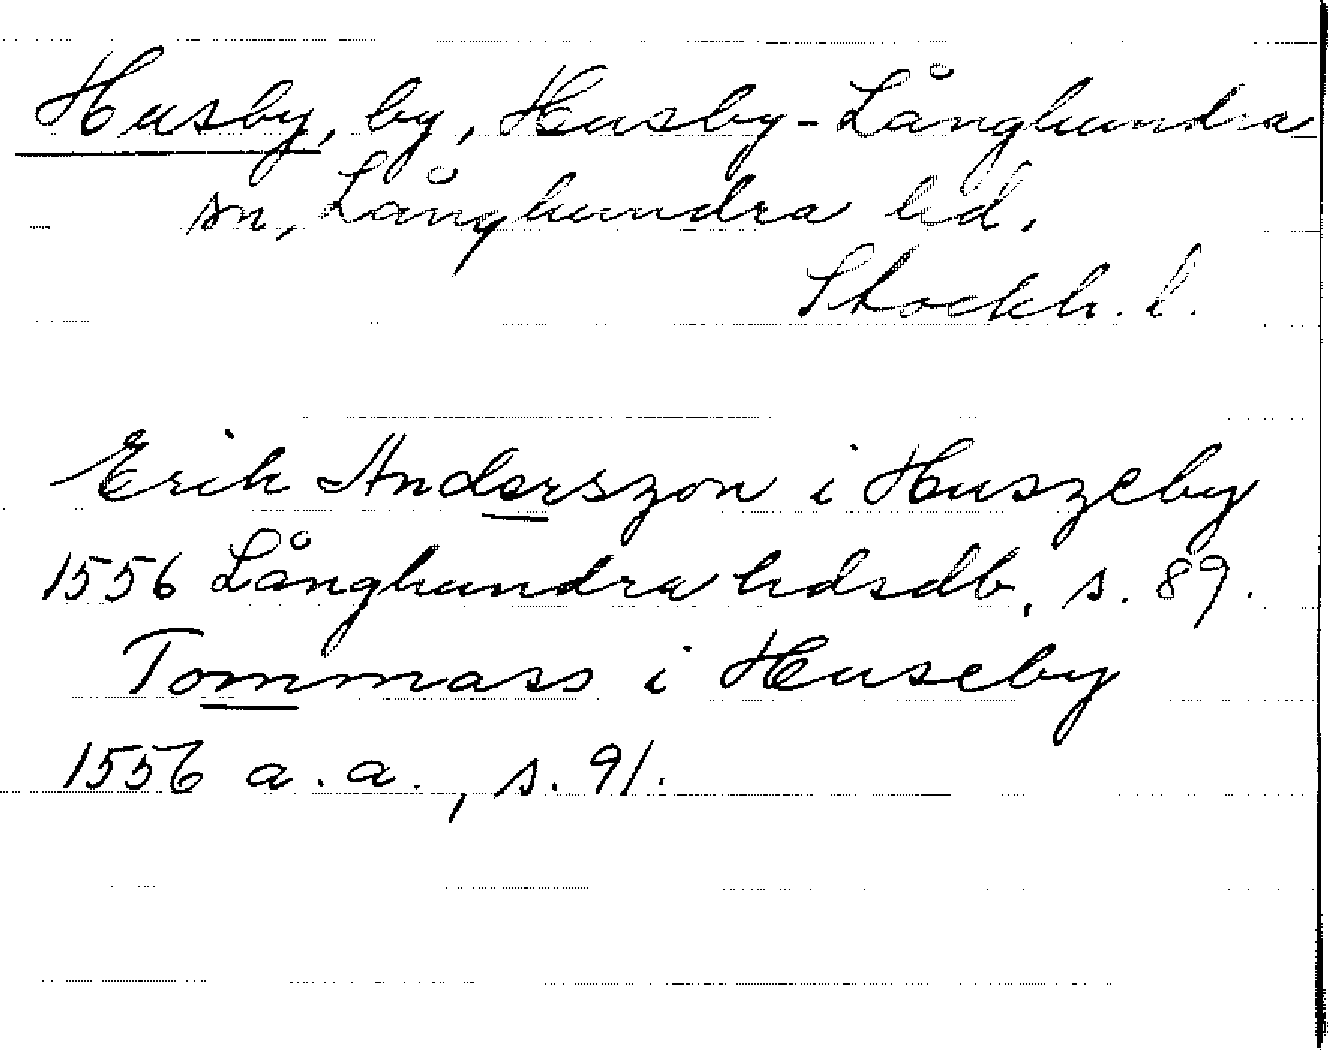 Husby, by, Husby-Långhundra
sn, Långhundra hd.
Stockh. l.
Erik Anderszon i Huszeby
1556 Långhundra hdsdb, s. 89.
Tommass i Huseby
1556 a.a., s. 91.